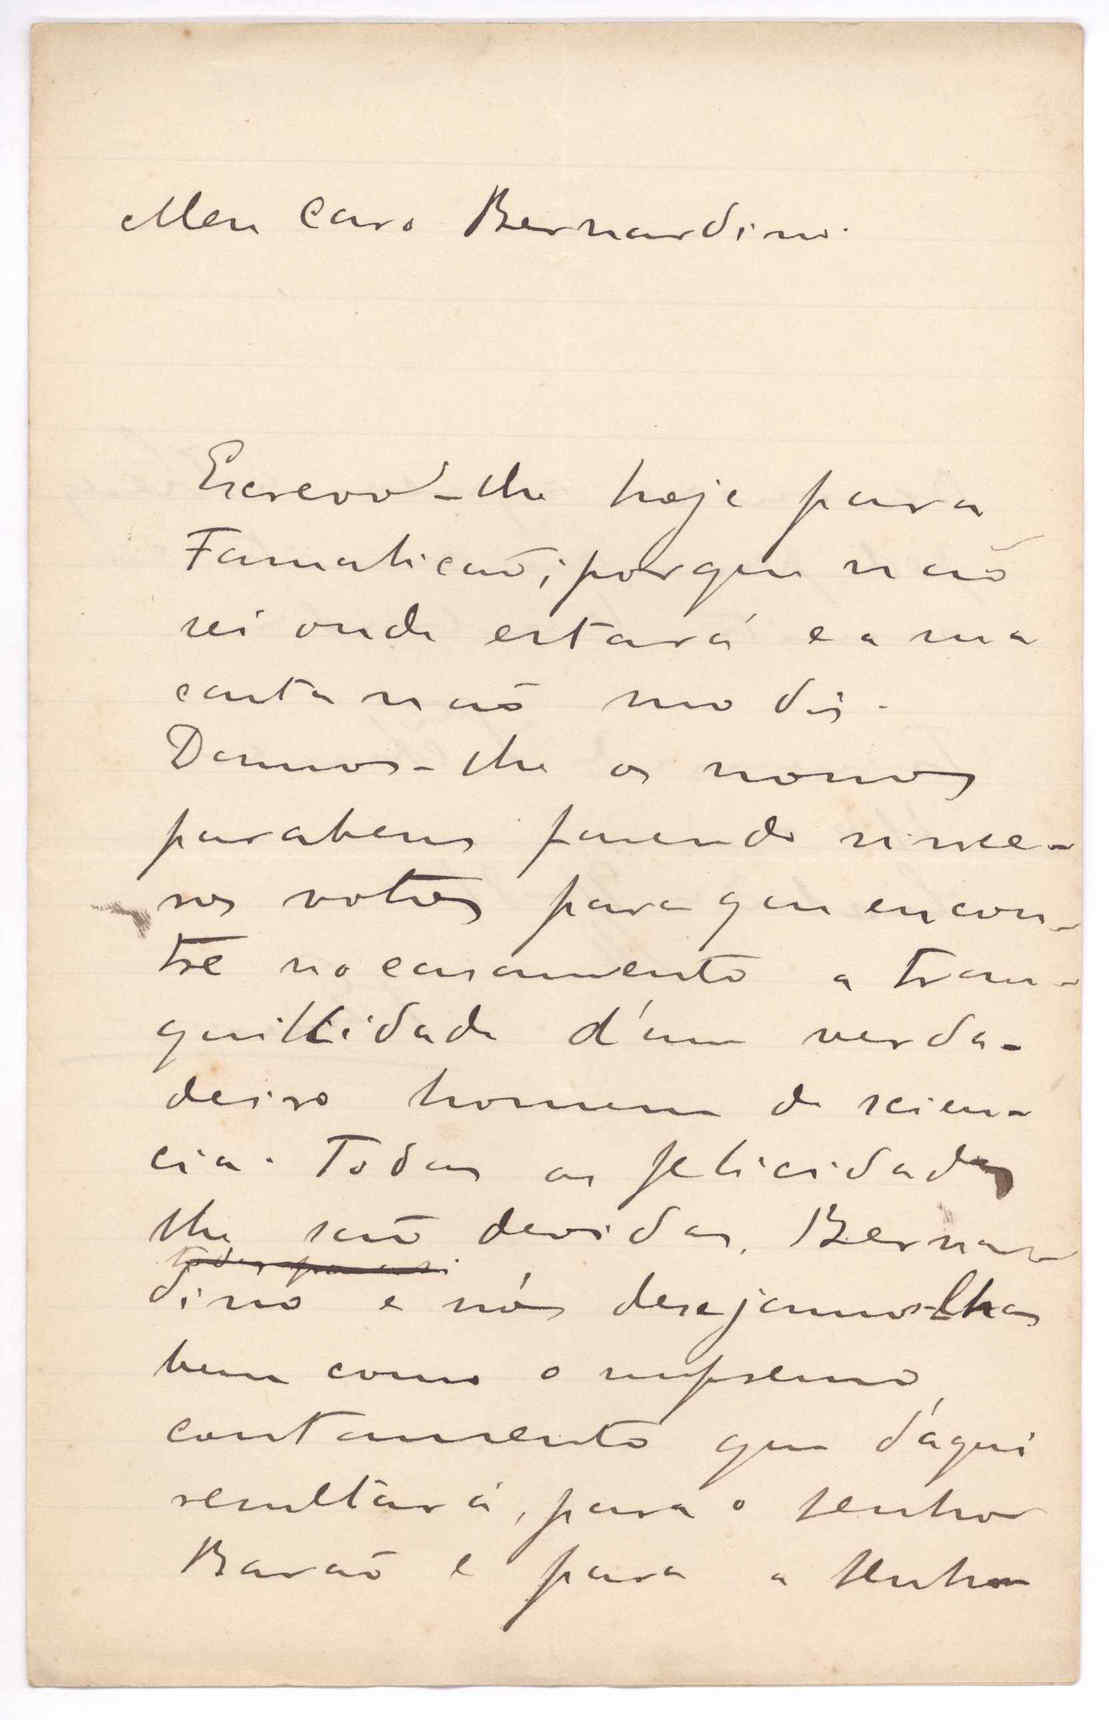 Meu caro Bernardino.
Escrevo-lhe hoje para
Famalicão, porque não
sei onde estará e a sua
carta não mo diz.
Damos-lhe os nossos
parabens fazendo since-
ros votos para que encon-
tre no casamento a tran-
quillidade d'um verda-
deiro homem de scien-
cia. Todas as felicidades
lhe são devidas, Bernar-
dino e nós desejamos-lhas
bem como o supremo
contentamento que d'aqui
resultará, para o senhor
Barão e para a senhora